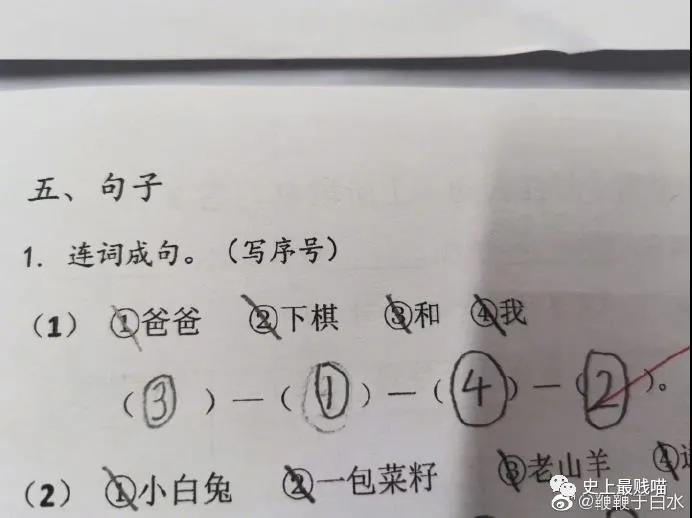 五、句子
1. 连词成句。（写序号）
（1） ①爸爸 ②下棋 ③和 ④我
（③）—（①）—（④）—（②）。
（2） ①小白兔 ②一包菜籽 ③老山羊 ④
史上最贱喵
@鞭鞭于白水